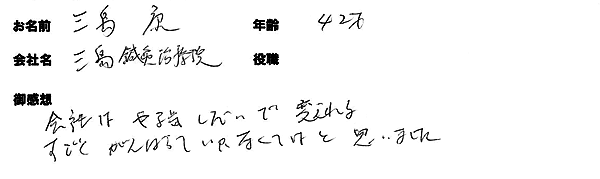 お名前 三島 康 年齢 42才
会社名 三島鍼灸治療院 役職
御感想
会社は やる気 しだいで 変えれる
すごく がんばって いかなくてはと 思いました